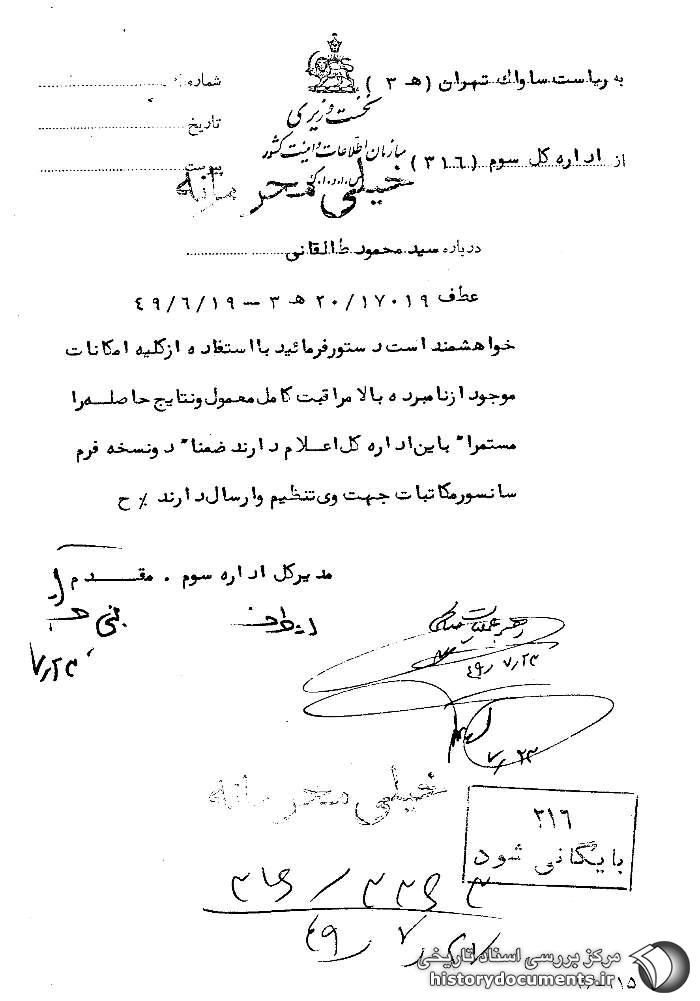 به ریاست ساواك تهران (هـ ۳)
شماره
نخست وزیری
تاریخ
سازمان اطلاعات و امنیت کشور
از اداره كل سوم (۳۱۶)
پیوست
س.ا.و.ا.ک
خیلی محرمانه
درباره سید محمود طالقانی
عطف ۲۰/۱۷۰۱۹ هـ ۳ – ٤۹/٦/۱۹
خواهشمند است دستور فرمائید با استفاده از کلیه امکانات
موجود از نامبرده بالا مراقبت کامل معمول و نتایج حاصله را
مستمرا" باین اداره کل اعلام دارند ضمنا" دو نسخه فرم
سانسور مکاتبات جهت وی تنظیم و ارسال دارند ٪ ح
مدیر کل اداره سوم . مقدم
۷/۲۳
۴۹/۷/۲۳
۷/۲۳
خیلی محرمانه
۳۱۶
بایگانی شود
۴۹/۷/۲۷
مرکز بررسی اسناد تاریخی
historydocuments.ir
۱۵